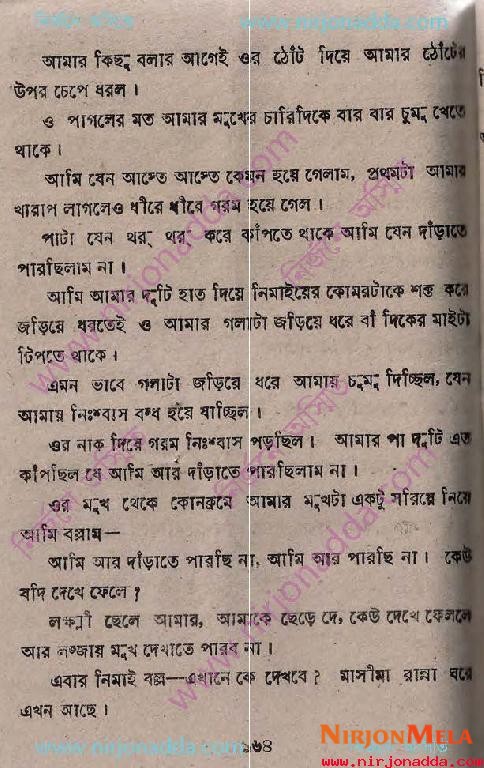 নির্জনে অসিত www.nirjonadda.com
আমার কিছু বলার আগেই ওর ঠোঁট দিয়ে আমার ঠোঁটের
উপর চেপে ধরল।
ও পাগলের মত আমার মুখের চারিদিকে বার বার চুমু খেতে
থাকে।
আমি যেন আস্তে আস্তে কেমন হয়ে গেলাম, প্রথমটা আমার
খারাপ লাগলেও ধীরে ধীরে গরম হয়ে গেল।
পাটা যেন থর্ থর্ করে কাঁপতে থাকে আমি যেন দাঁড়াতে
পারছিলাম না।
আমি আমার দুটি হাত দিয়ে নিমাইয়ের কোমরটাকে শক্ত করে
জড়িয়ে ধরতেই ও আমার গলাটা জড়িয়ে ধরে বাঁ দিকের মাইটা
টিপতে থাকে।
এমন ভাবে গলাটা জড়িয়ে ধরে আমায় চুমু দিচ্ছিল, যেন
আমায় নিঃশ্বাস বন্ধ হয়ে যাচ্ছিল।
ওর নাক দিয়ে গরম নিঃশ্বাস পড়ছিল। আমার পা দুটি এত
কাঁপছিল যে আমি আর দাঁড়াতে পারছিলাম না।
ওর মুখ থেকে কোনক্রমে আমার মুখটা একটু সরিয়ে নিয়ে
আমি বল্লাম—
আমি আর দাঁড়াতে পারছি না, আমি আর পারছি না। কেউ
যদি দেখে ফেলে?
লক্ষ্মী ছেলে আমার, আমাকে ছেড়ে দে, কেউ দেখে ফেললে
আর লজ্জায় মুখ দেখাতে পারব না।
এবার নিমাই বল্ল—এখানে কে দেখবে? মাসীমা রান্না ঘরে
এখন আছে।
www.nirjonadda.com ১৬৪
NIRJONMELA
www.nirjonadda.com